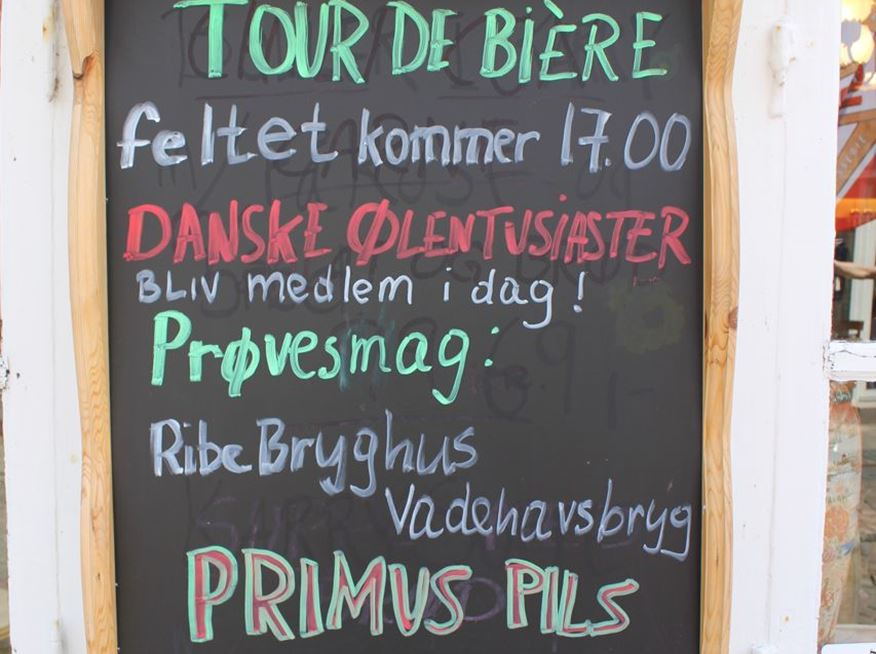 TOUR DE BIÈRE
feltet kommer 17.00
DANSKE ØLENTUSIASTER
BLIV medlem i dag!
Prøvesmag:
Ribe Bryghus
Vadehavsbryg
PRIMUS PILS